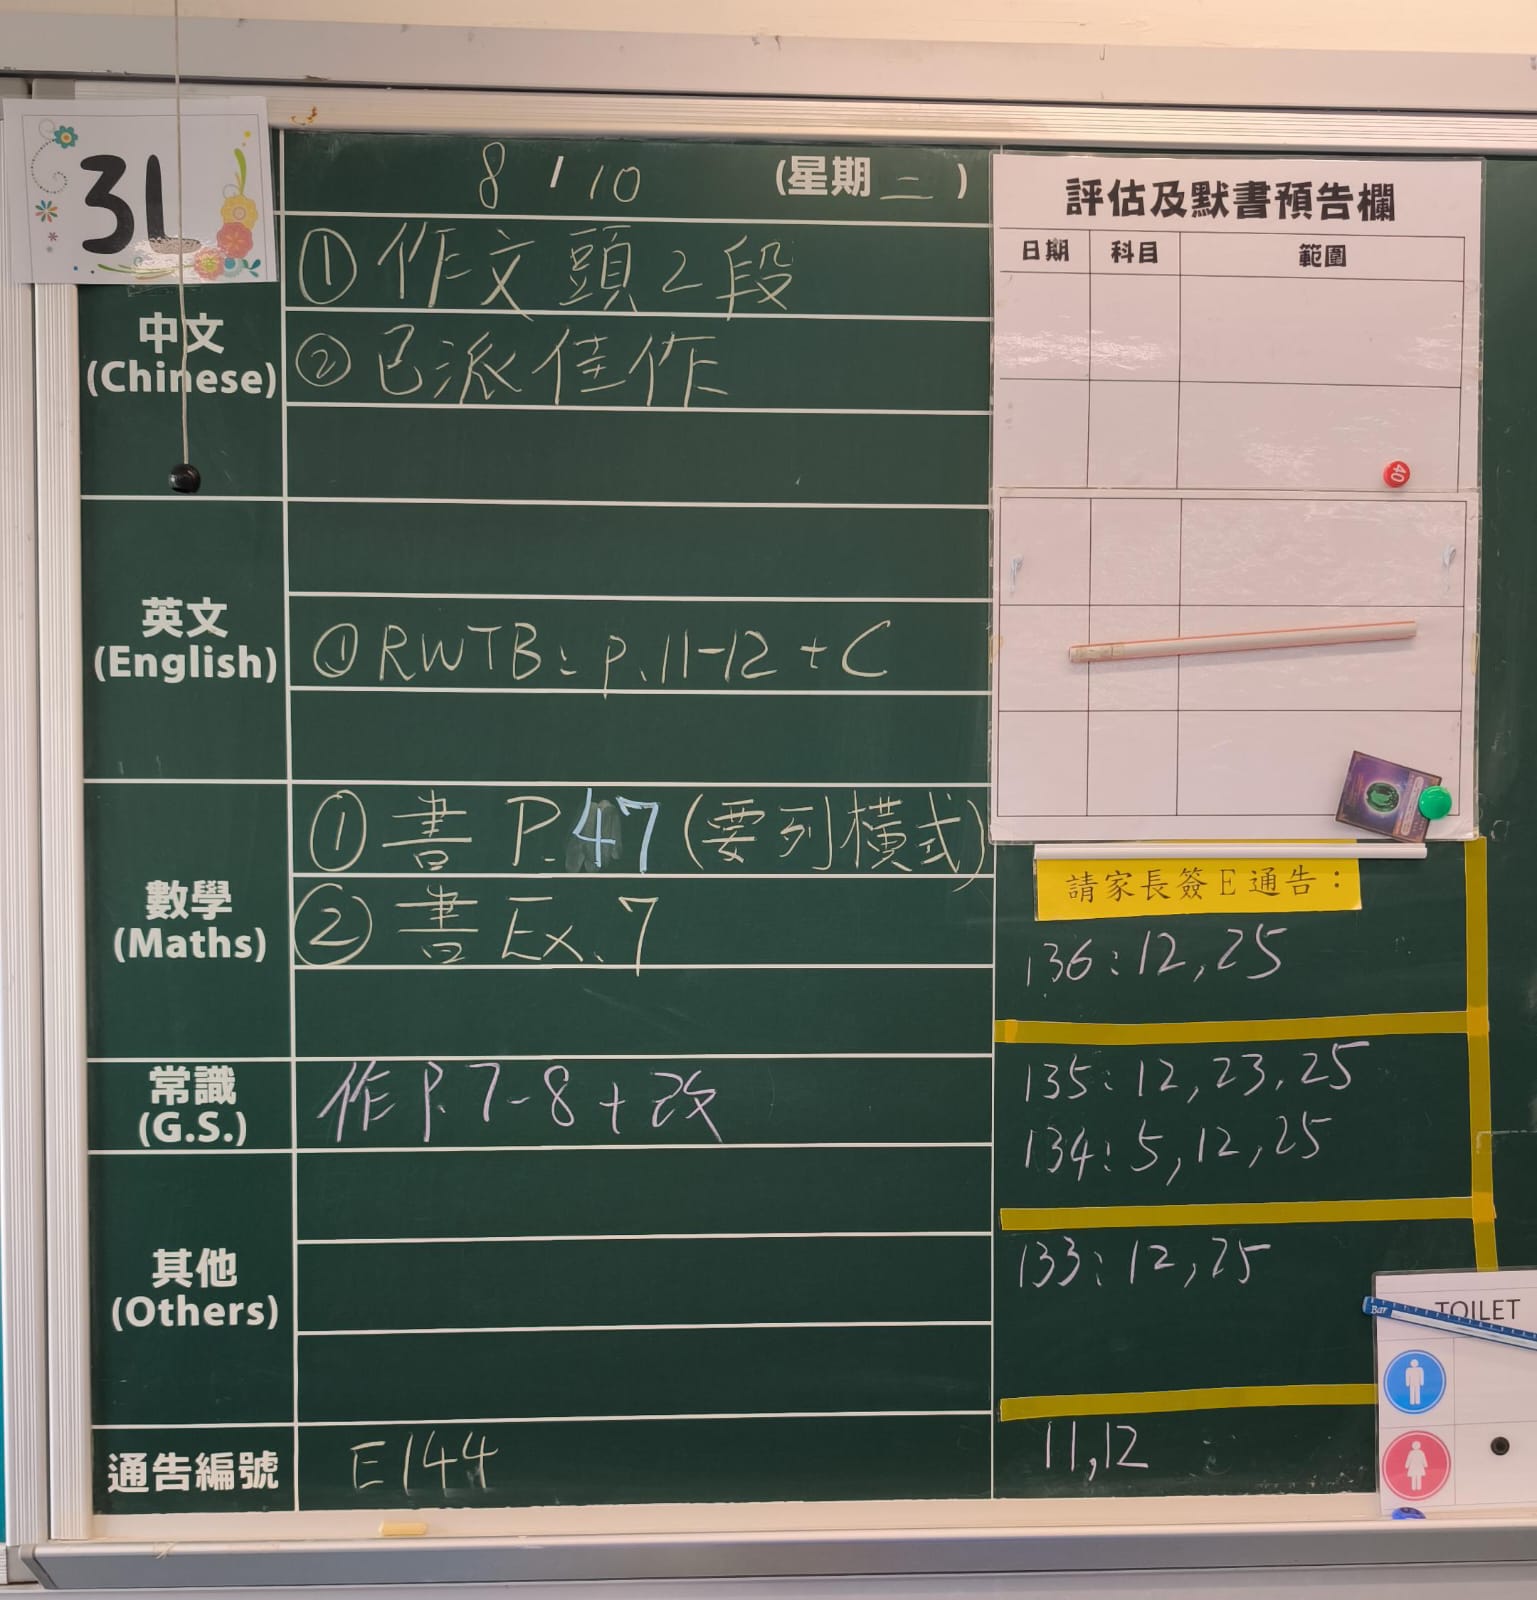 3L
8 / 10 (星期二)
中文
(Chinese)
① 作文頭2段
② 已派佳作
英文
(English)
① RWTB: p.11-12 + C
數學
(Maths)
① 書 P.47 (要列橫式)
② 書 Ex.7
常識
(G.S.)
作 P.7-8 + 改
其他
(Others)
通告編號
E144
評估及默書預告欄
日期 科目 範圍
40
請家長簽E通告：
136: 12, 25
135: 12, 23, 25
134: 5, 12, 25
133: 12, 25
11, 12
Bar
TOILET